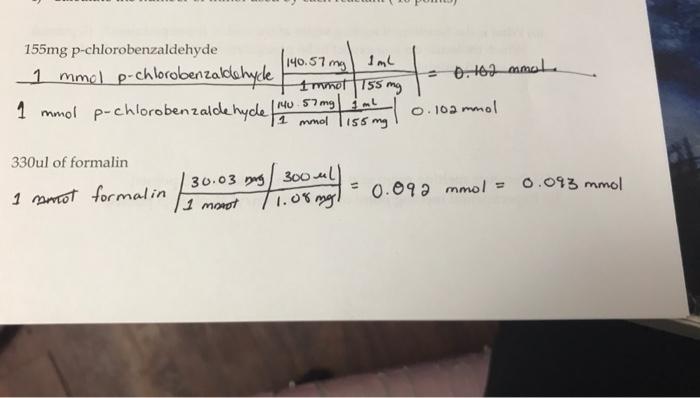 155mg p-chlorobenzaldehyde
1 mmol p-chlorobenzaldehyde | 140.57 mg | 1 mL = 0.102 mmol
1 mmol | 155 mg
1 mmol p-chlorobenzaldehyde | 140.57 mg | 1 mL | 0.102 mmol
1 mmol | 155 mg
330ul of formalin
1 formalin | 30.03 mg | 300 ul | = 0.092 mmol = 0.093 mmol
1 | 1.08 mg